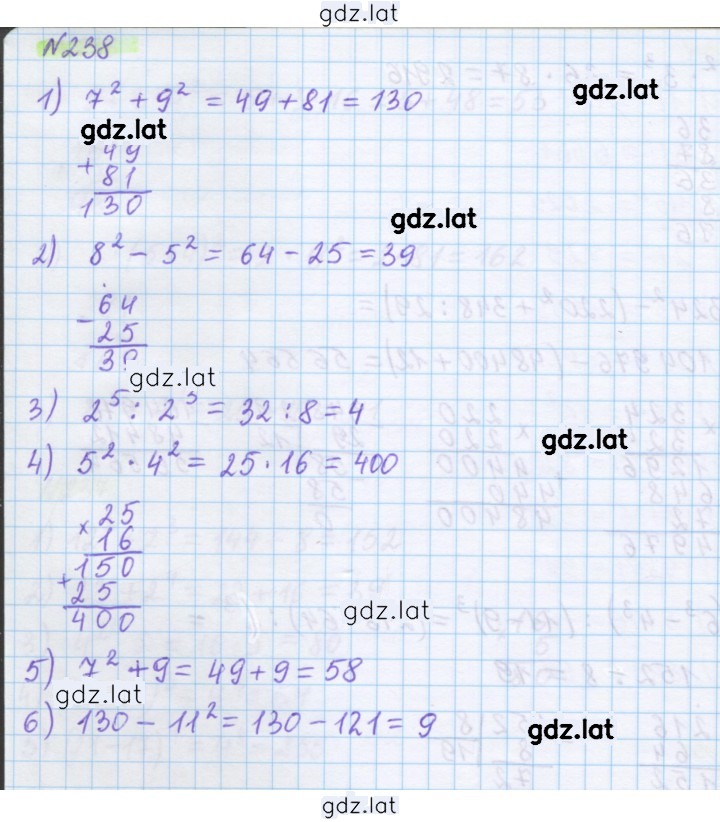 gdz.lat
N238
1) 7² + 9² = 49 + 81 = 130
gdz.lat
gdz.lat
+ 49
81
130
gdz.lat
2) 8² - 5² = 64 - 25 = 39
- 64
25
39
gdz.lat
3) 2⁵ : 2³ = 32 : 8 = 4
gdz.lat
4) 5² · 4² = 25 · 16 = 400
× 25
16
150
+ 25
400
gdz.lat
5) 7² + 9 = 49 + 9 = 58
gdz.lat
6) 130 - 11² = 130 - 121 = 9
gdz.lat
gdz.lat